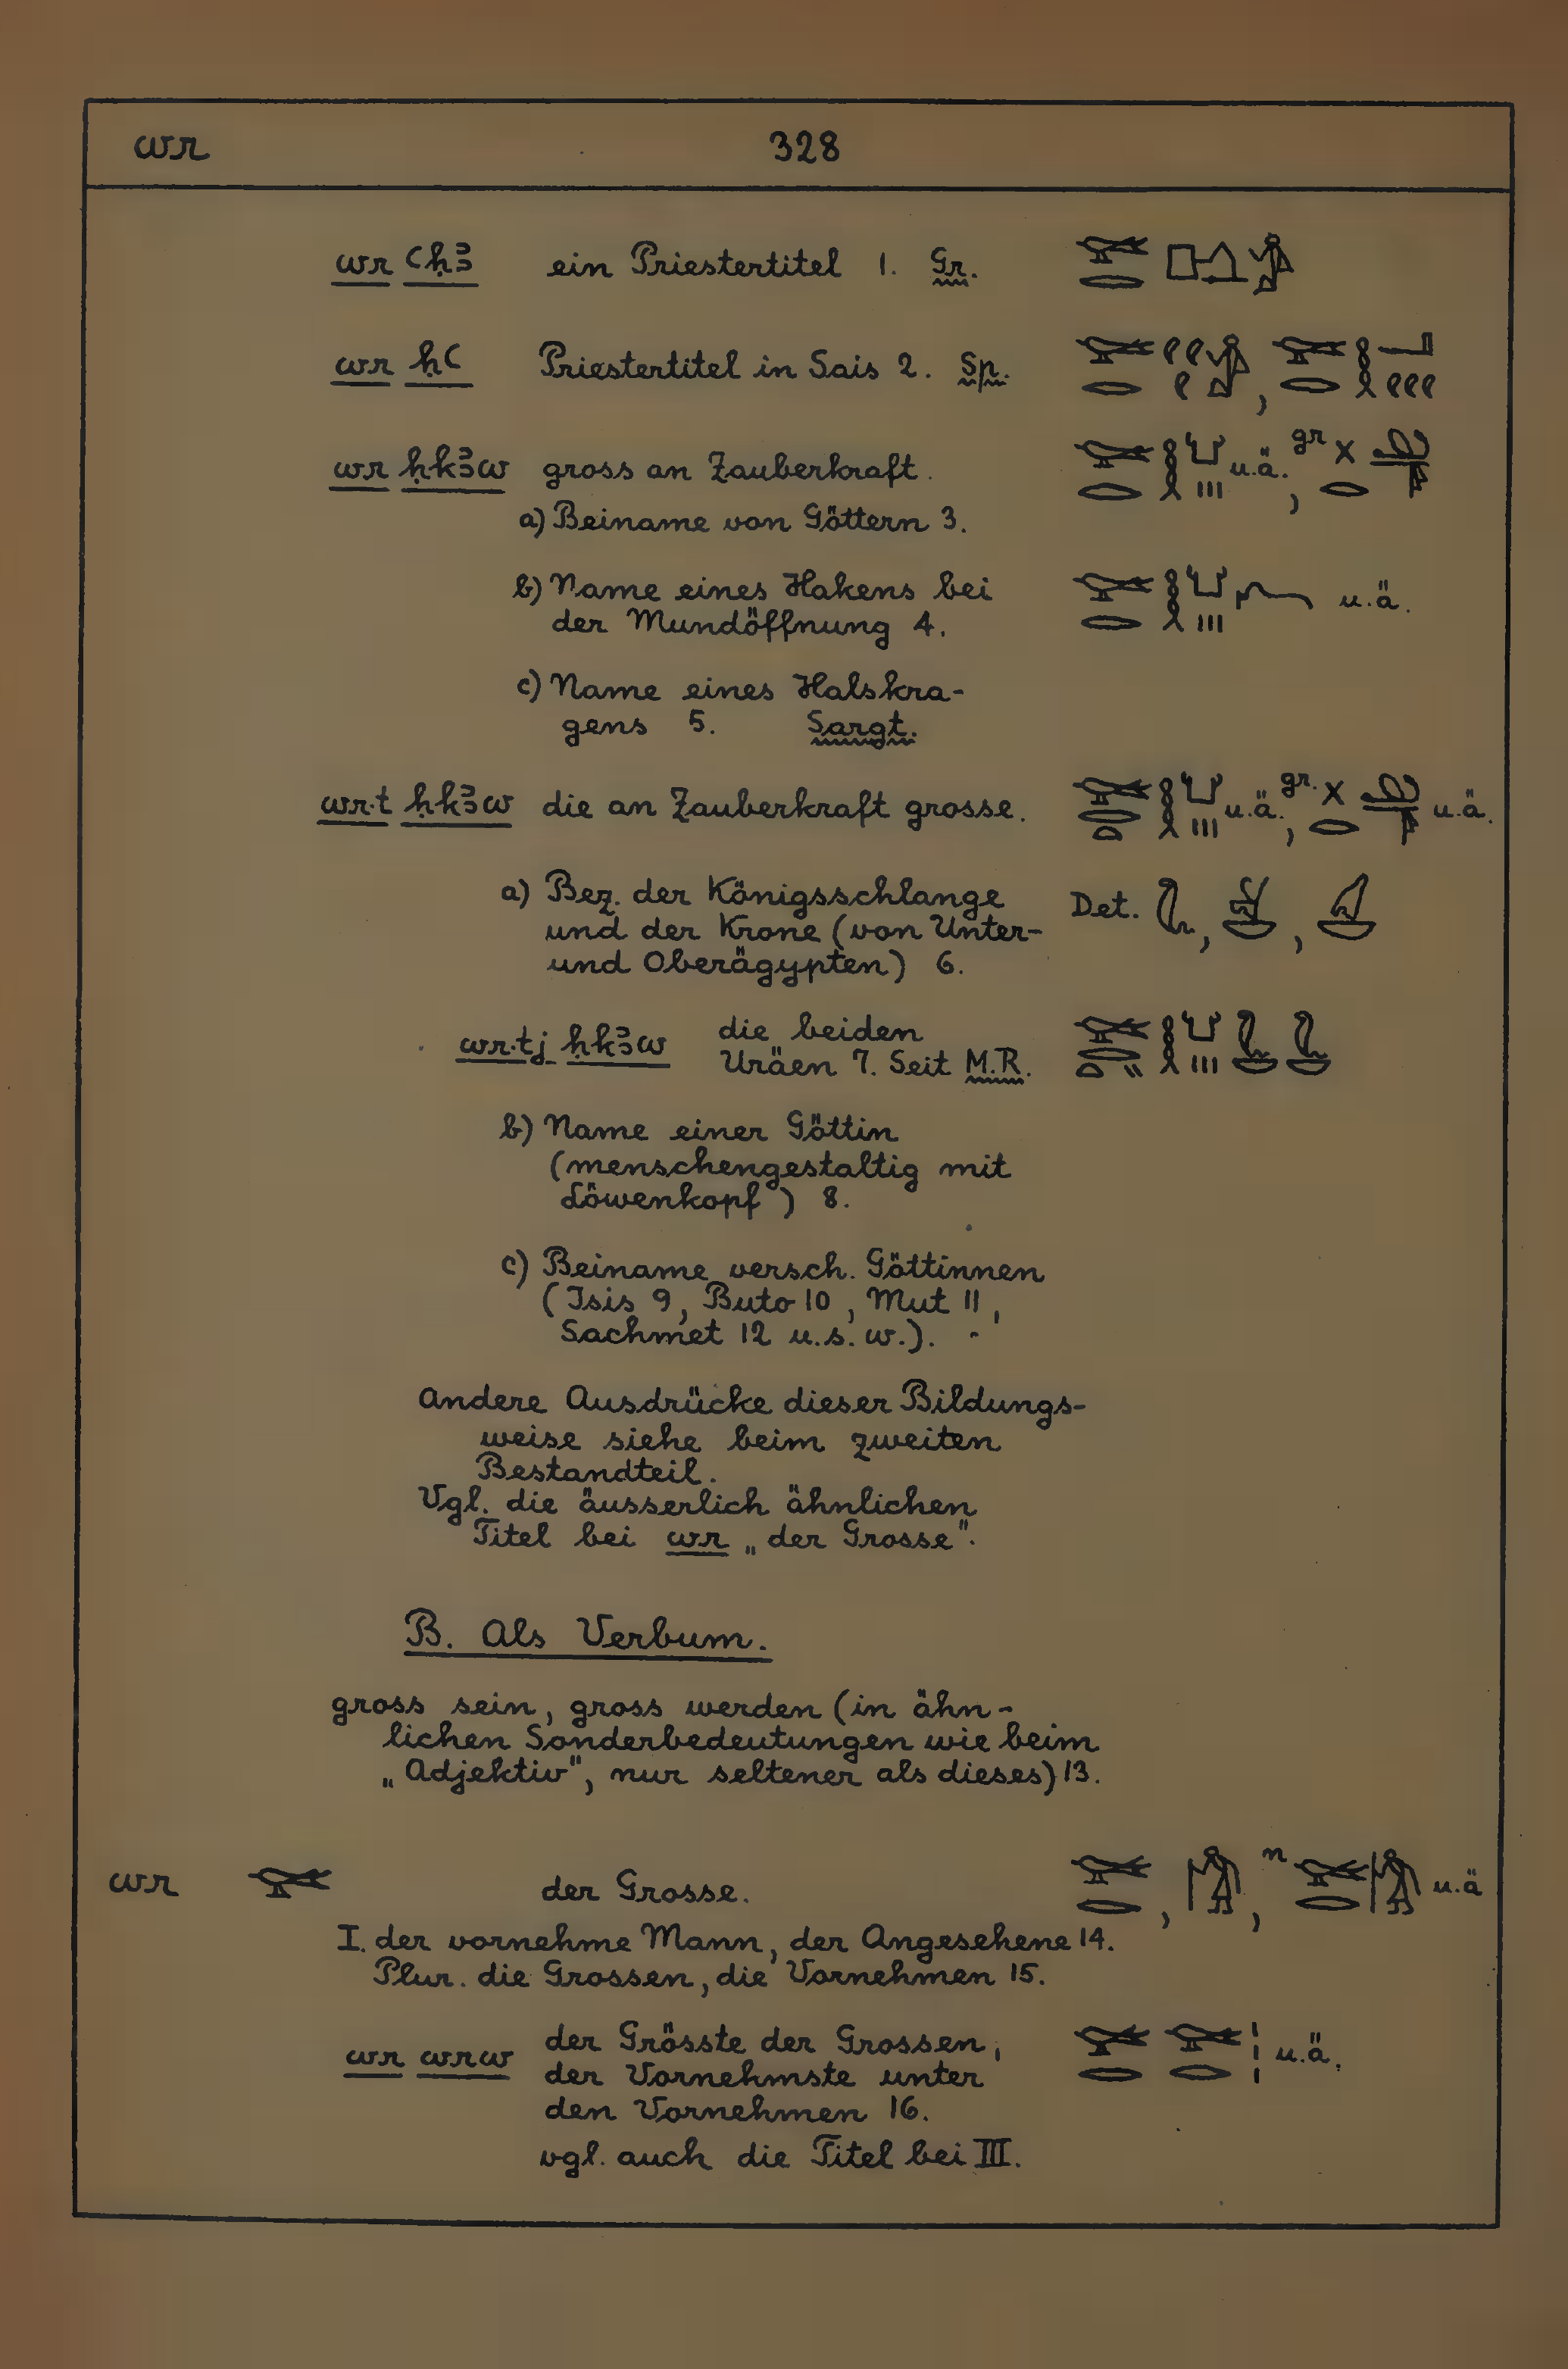 wr 328
wr ꜥḥꜣ ein Priestertitel 1. Gr.
wr ḥꜥ Priestertitel in Sais 2. Sp.
wr ḥkꜣw gross an Zauberkraft. u.ä., gr
a) Beiname von Göttern 3.
b) Name eines Hakens bei u.ä.
der Mundöffnung 4.
c) Name eines Halskra-
gens 5. Sargt.
wr·t ḥkꜣw die an Zauberkraft grosse. u.ä., gr. u.ä.
a) Bez. der Königsschlange Det.
und der Krone (von Unter-
und Oberägypten) 6.
wr·tj ḥkꜣw die beiden
Uräen 7. Seit M.R.
b) Name einer Göttin
(menschengestaltig mit
Löwenkopf) 8.
c) Beiname versch. Göttinnen
(Isis 9, Buto 10, Mut 11,
Sachmet 12 u.s.w.).
Andere Ausdrücke dieser Bildungs-
weise siehe beim zweiten
Bestandteil.
Vgl. die äusserlich ähnlichen
Titel bei wr „der Grosse".
B. Als Verbum.
gross sein, gross werden (in ähn-
lichen Sonderbedeutungen wie beim
„Adjektiv", nur seltener als dieses) 13.
wr der Grosse. , , n u.ä
I. der vornehme Mann, der Angesehene 14.
Plur. die Grossen, die Vornehmen 15.
wr wrw der Grösste der Grossen, u.ä.
der Vornehmste unter
den Vornehmen 16.
vgl. auch die Titel bei III.